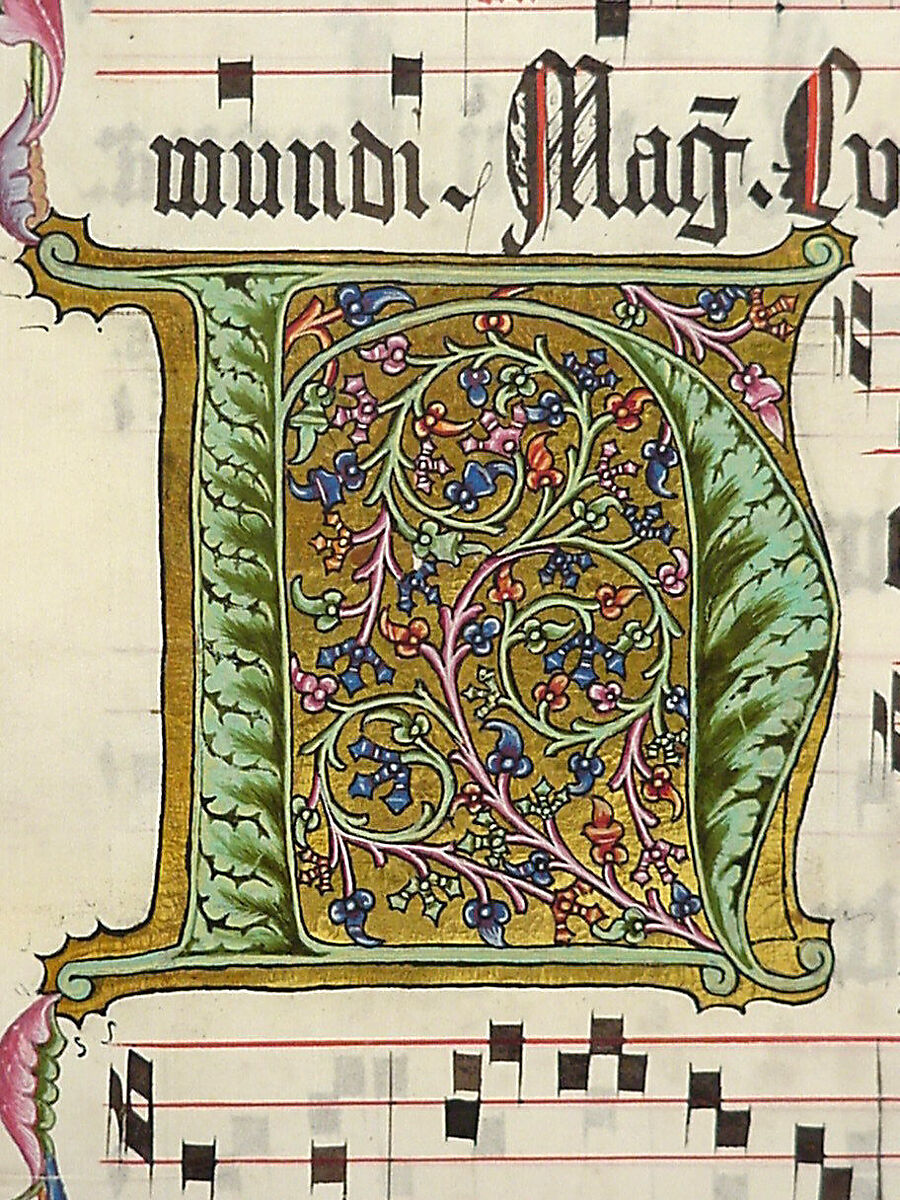 mundi. Mag̃. Lu